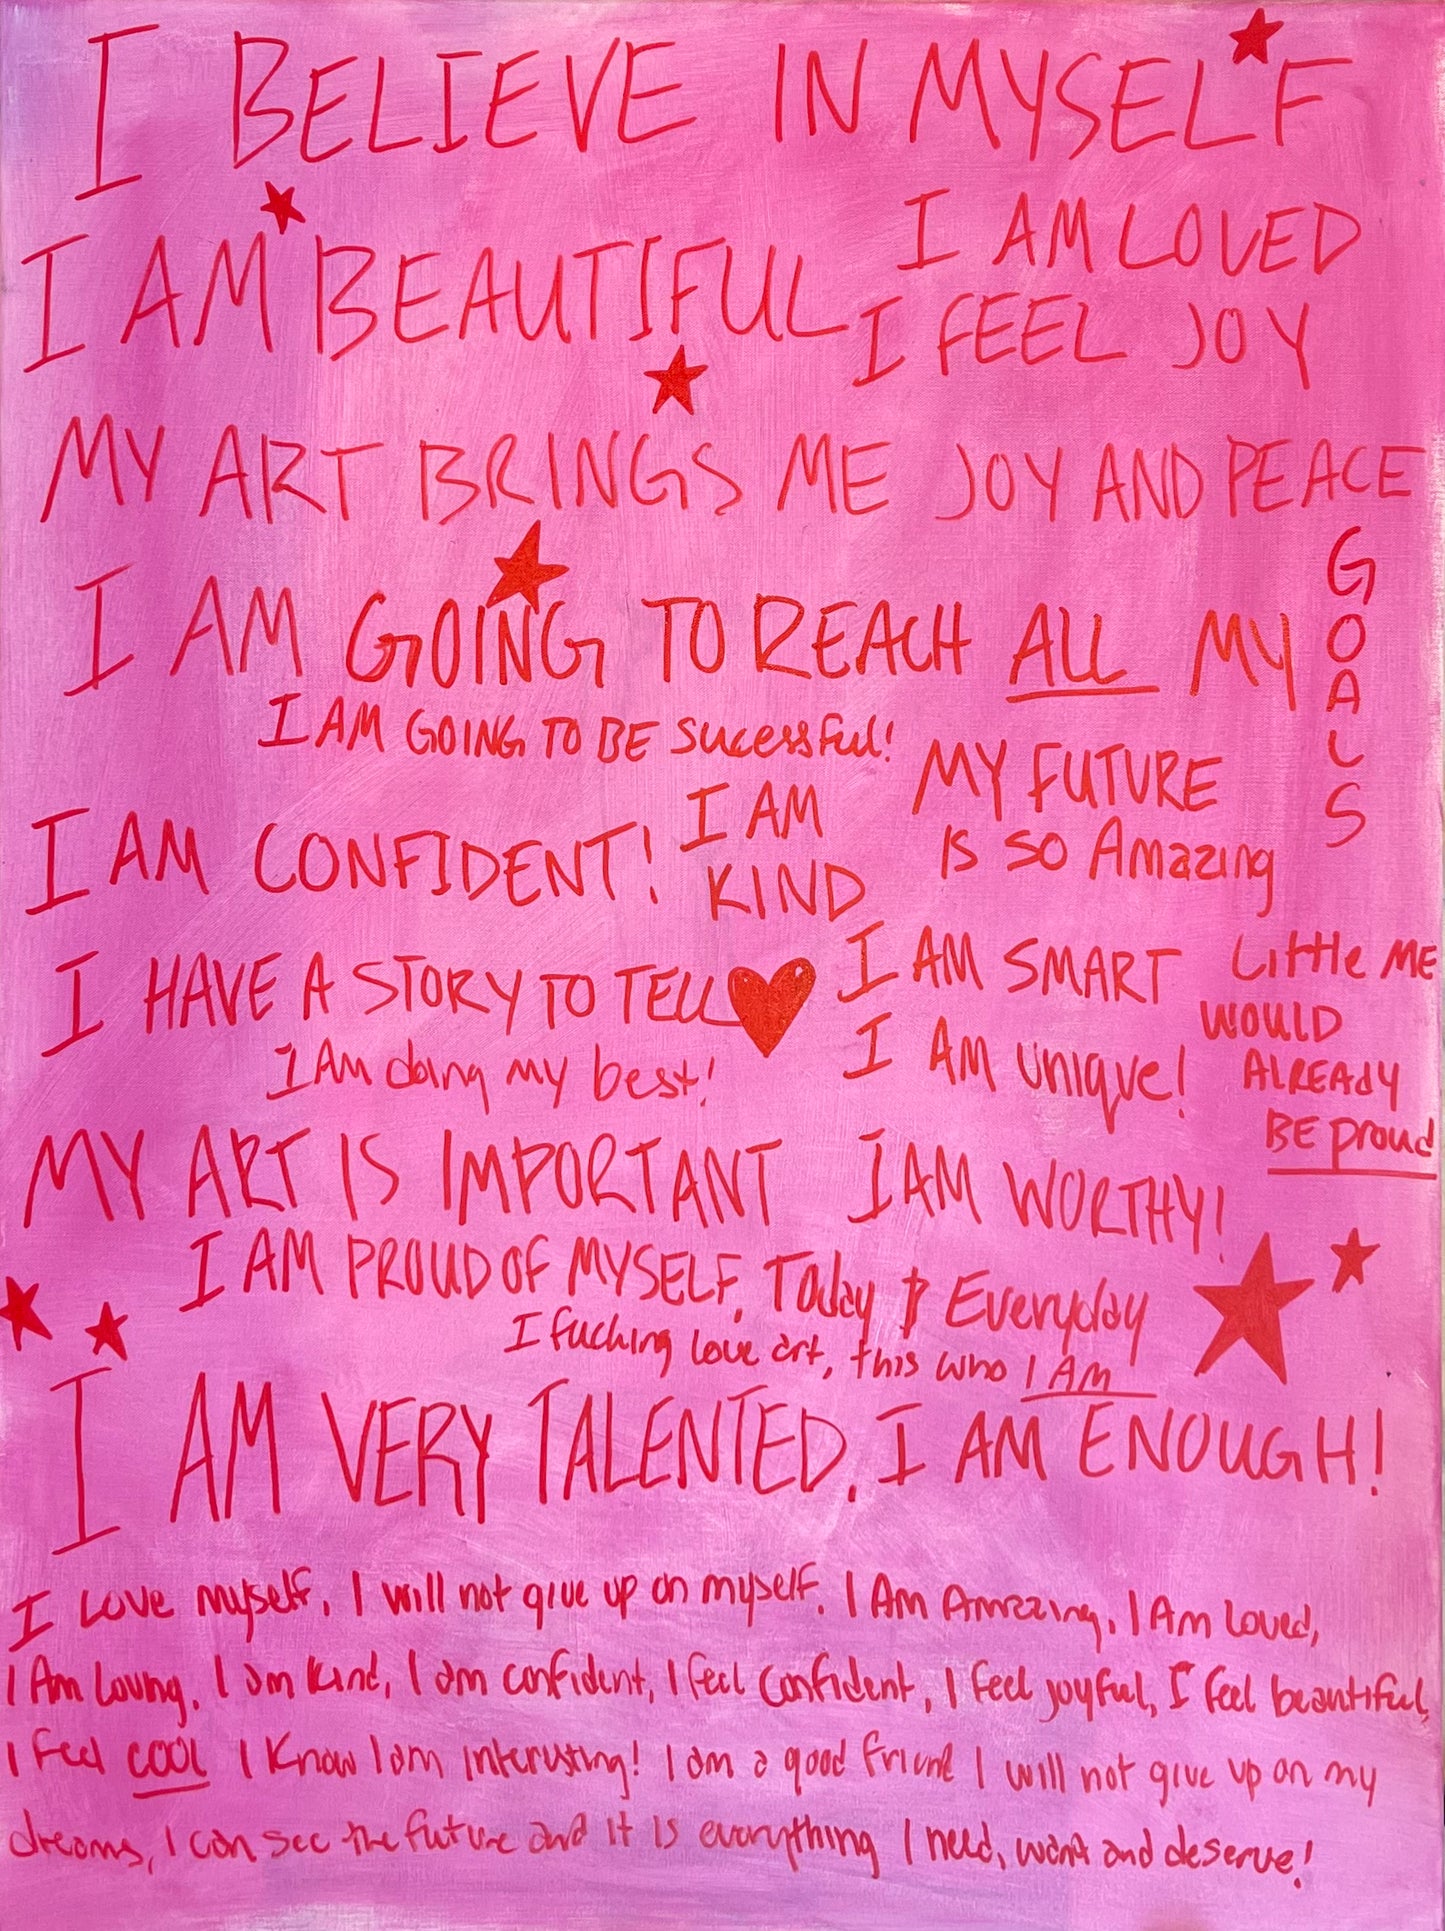 I BELIEVE IN MYSELF
I AM BEAUTIFUL
I AM LOVED
I FEEL JOY
MY ART BRINGS ME JOY AND PEACE
I AM GOING TO REACH ALL MY GOALS
I AM GOING TO BE SUCESSFUL!
MY FUTURE
IS SO AMAZING
I AM CONFIDENT!
I AM
KIND
I HAVE A STORY TO TELL
I AM SMART
LittLe ME
WOULD
ALREAdY
BE proud
I AM doing MY best!
I AM unique!
MY ART IS IMPORTANT
I AM WORTHY!
I AM PROUD OF MYSELF. TOday & Everyday
I fucking love art, this who I AM
I AM VERY TALENTED. I AM ENOUGH!
I Love myself. I will not give up on myself. I AM AMAzing. I AM Loved,
I AM Loving. I am kind, I am confident, I feel confident, I feel joyful, I feel beautiful,
I feel COOl I know I am interesting! I am a good friend I will not give up on my
dreams, I can see the future and it is everything I need, want and deserve!